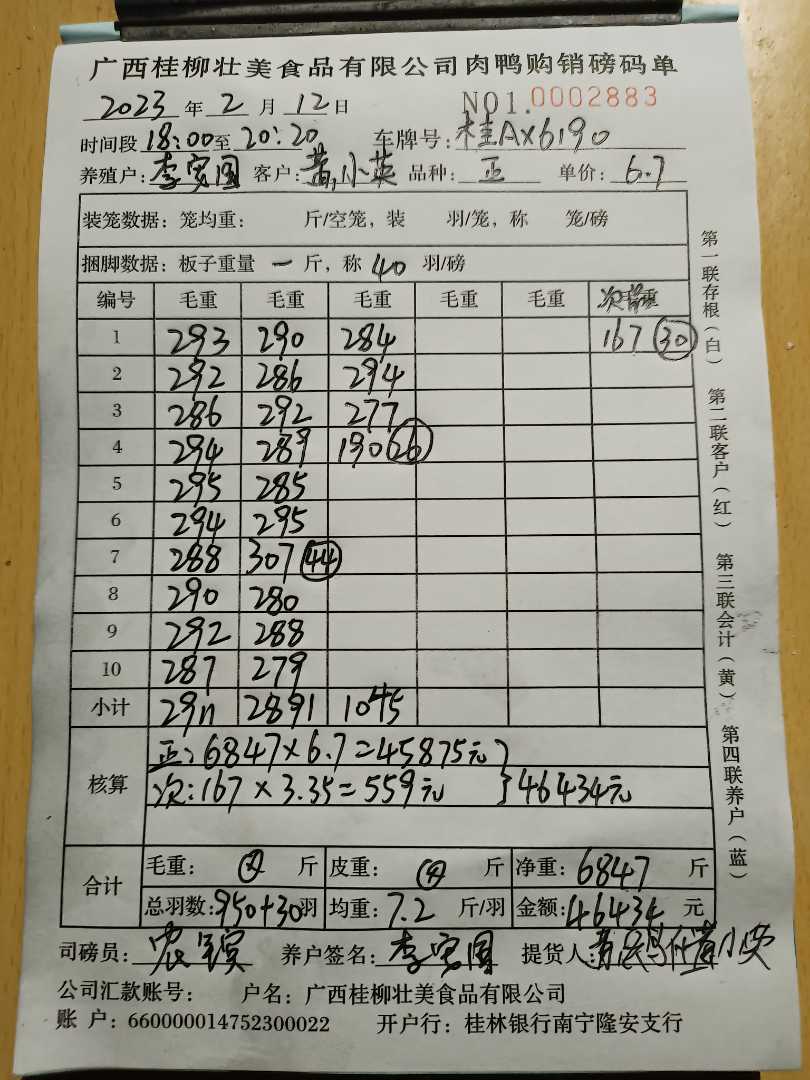 广西桂柳壮美食品有限公司肉鸭购销磅码单
2023 年 2 月 12 日 NO1. 0002883
时间段 18:00 至 20:20 车牌号: 桂AX6190
养殖户: 李宽国 客户: 黄小英 品种: 正 单价: 6.7
装笼数据: 笼均重: 斤/空笼, 装 羽/笼, 称 笼/磅
捆脚数据: 板子重量 一 斤, 称 40 羽/磅
编号 毛重 毛重 毛重 毛重 毛重 次
1 293 290 284 167 30
2 292 286 294
3 286 292 277
4 294 289 190 26
5 295 285
6 294 295
7 288 307 44
8 290 280
9 292 288
10 287 279
小计 2911 2891 1045
核算
正: 6847×6.7=45875元
次: 167×3.35=559元 } 46434元
合计
毛重: 斤 皮重: 斤 净重: 6847 斤
总羽数: 950+30 羽 均重: 7.2 斤/羽 金额: 46434 元
司磅员: 养户签名: 李宽国 提货人: 黄小英
公司汇款账号: 户名: 广西桂柳壮美食品有限公司
账 户: 660000014752300022 开户行: 桂林银行南宁隆安支行
第一联存根(白) 第二联客户(红) 第三联会计(黄) 第四联养户(蓝)